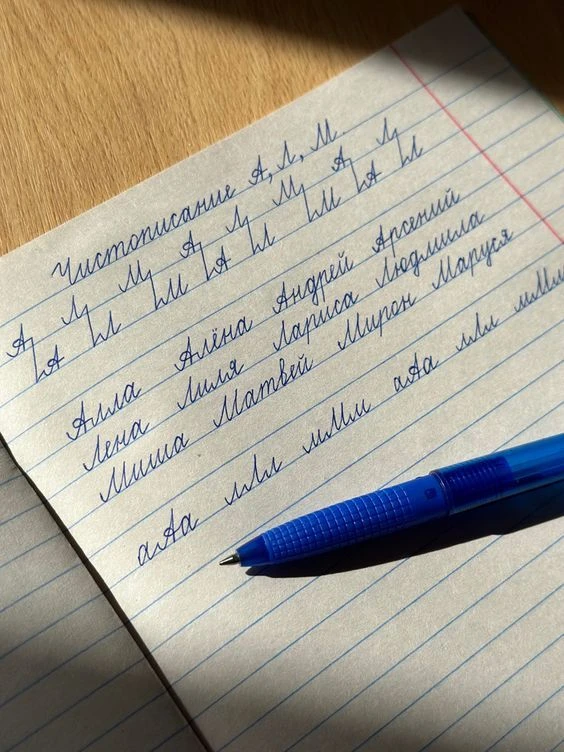 Чистописание А, Л, М.
А Л М А Л М А Л
А Л М А Л М А Л
Алла Алёна Андрей Арсений
Лена Лиля Лариса Людмила
Миша Матвей Мирон Маруся
аАа лЛл мМм аАа лЛл мМм